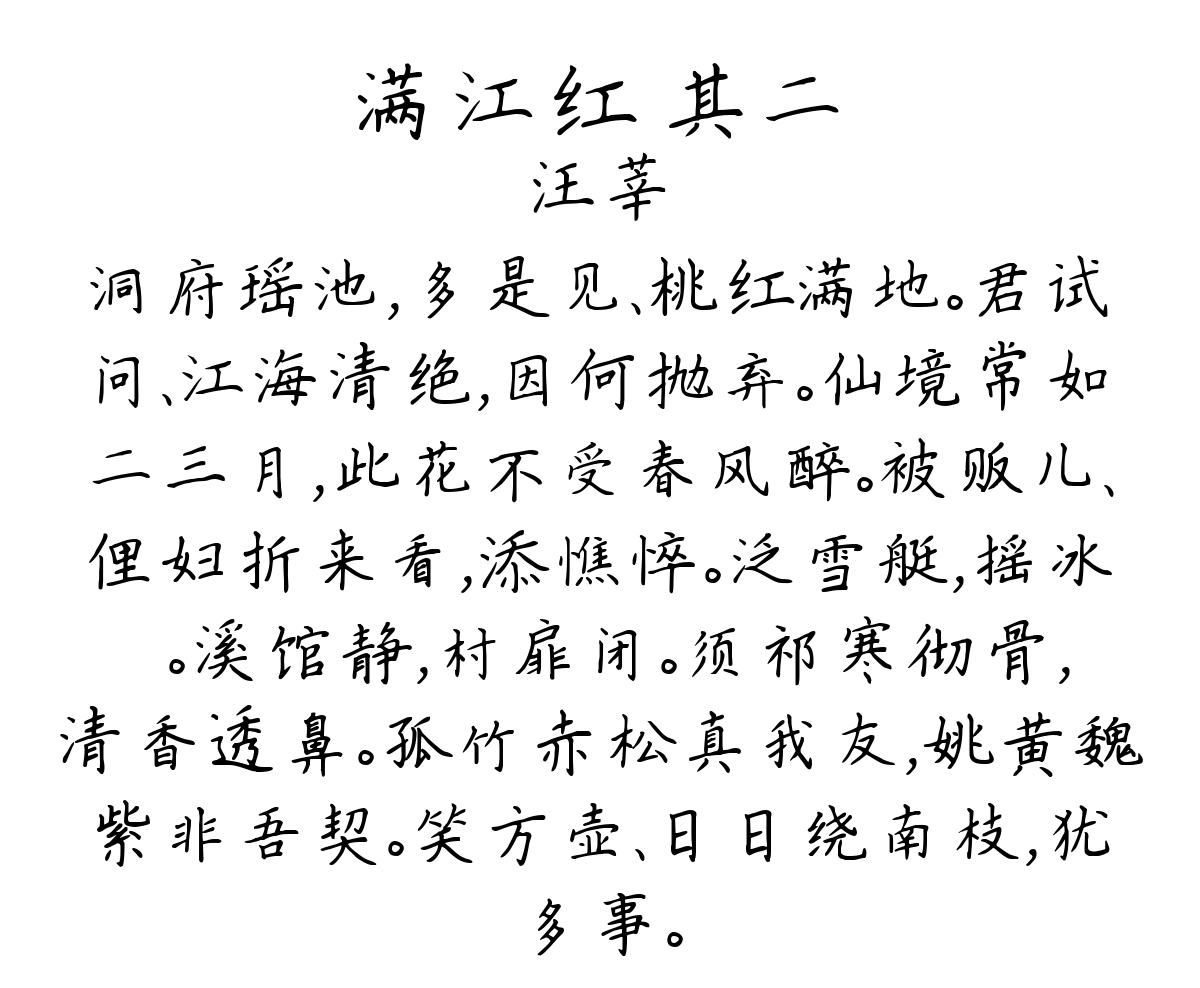 满江红 其二
汪莘
洞府瑶池,多是见、桃红满地。君试
问、江海清绝,因何抛弃。仙境常如
二三月,此花不受春风醉。被贩儿、
俚妇折来看,添憔悴。泛雪艇,摇冰
。溪馆静,村扉闭。须祁寒彻骨,
清香透鼻。孤竹赤松真我友,姚黄魏
紫非吾契。笑方壶、日日绕南枝,犹
多事。